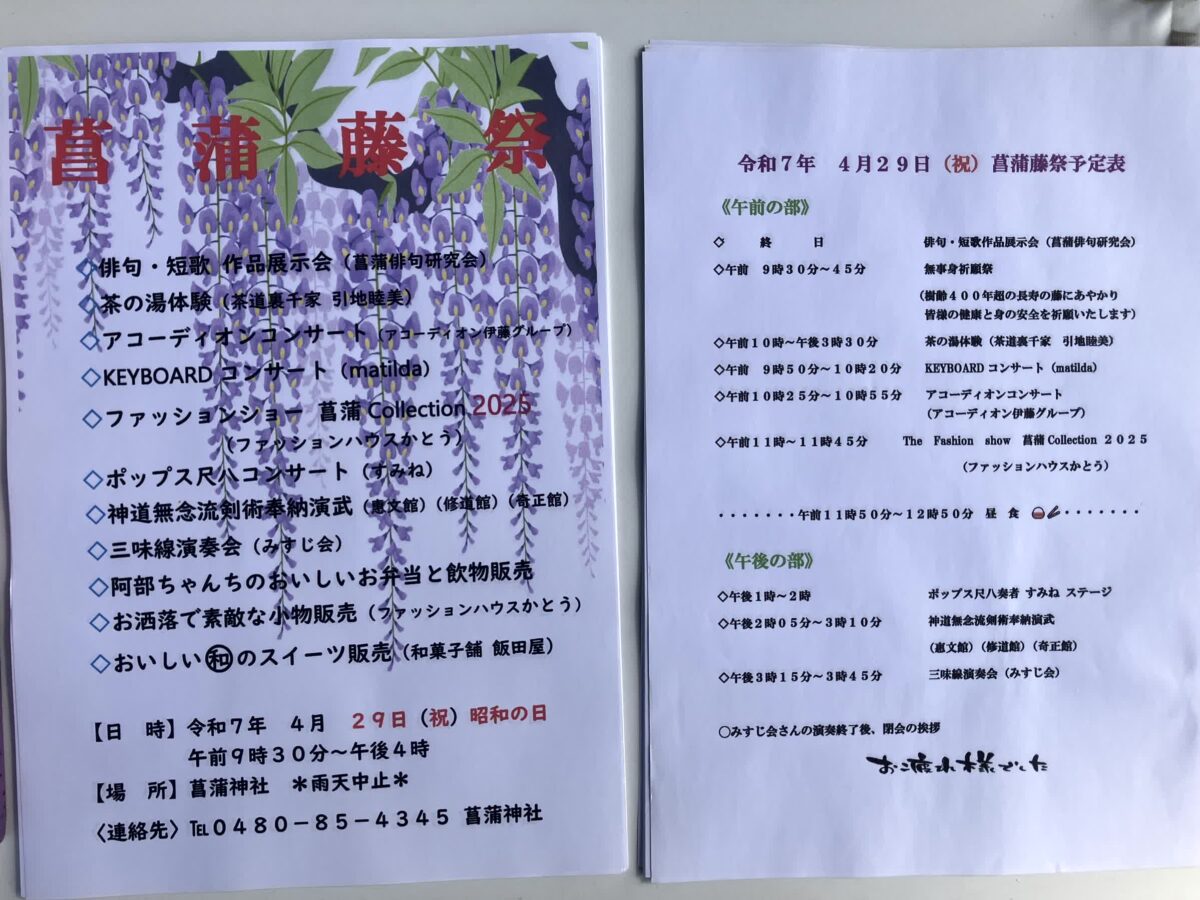 菖蒲藤祭
◇俳句・短歌 作品展示会（菖蒲俳句研究会）
◇茶の湯体験（茶道裏千家 引地睦美）
◇アコーディオンコンサート（アコーディオン伊藤グループ）
◇KEYBOARDコンサート（matilda）
◇ファッションショー 菖蒲Collection 2025
（ファッションハウスかとう）
◇ポップス尺八コンサート（すみね）
◇神道無念流剣術奉納演武（恵文館）（修道館）（奇正館）
◇三味線演奏会（みすじ会）
◇阿部ちゃんちのおいしいお弁当と飲物販売
◇お洒落で素敵な小物販売（ファッションハウスかとう）
◇おいしい㊥のスイーツ販売（和菓子舗 飯田屋）
【日　時】令和７年　４月　２９日（祝）昭和の日
午前９時３０分～午後４時
【場　所】菖蒲神社　＊雨天中止＊
〈連絡先〉℡０４８０－８５－４３４５ 菖蒲神社
令和７年　４月２９日（祝）菖蒲藤祭予定表
《午前の部》
◇　終　日　俳句・短歌作品展示会（菖蒲俳句研究会）
◇午前　９時３０分～４５分　無事身祈願祭
（樹齢４００年超の長寿の藤にあやかり
皆様の健康と身の安全を祈願いたします）
◇午前１０時～午後３時３０分　茶の湯体験（茶道裏千家　引地睦美）
◇午前　９時５０分～１０時２０分　KEYBOARDコンサート（matilda）
◇午前１０時２５分～１０時５５分　アコーディオンコンサート
（アコーディオン伊藤グループ）
◇午前１１時～１１時４５分　The Fashion show 菖蒲Collection ２０２５
（ファッションハウスかとう）
・・・・・・・午前１１時５０分～１２時５０分　昼　食　・・・・・・・
《午後の部》
◇午後１時～２時　ポップス尺八奏者 すみね ステージ
◇午後２時０５分～３時１０分　神道無念流剣術奉納演武
（恵文館）（修道館）（奇正館）
◇午後３時１５分～３時４５分　三味線演奏会（みすじ会）
〇みすじ会さんの演奏終了後、閉会の挨拶
お疲れ様でした